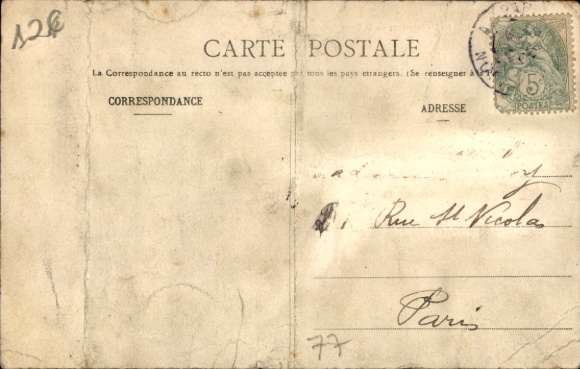 12€
CARTE POSTALE
La Correspondance au recto n'est pas acceptée par tous les pays étrangers. (Se renseigner à
CORRESPONDANCE
ADRESSE
Rue St Nicolas
Paris
77
5
POSTES